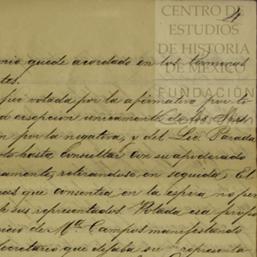 CENTRO DE
ESTUDIOS
DE HISTORIA
DE MÉXICO
FUNDACIÓN
4
nio quede acordado en los términos
tes.
fué votada por la afirmativa por to
a excepcion unicamente de los Sres
n por la negativa, y del Lic Parada
do hasta consultar con su apoderado
amente, retirandose en seguida, El
eos que consentia en la espera no per
k sus representados Votada esa propo
icio de Mr. Campos manifestando
secretario que dejaba su representa